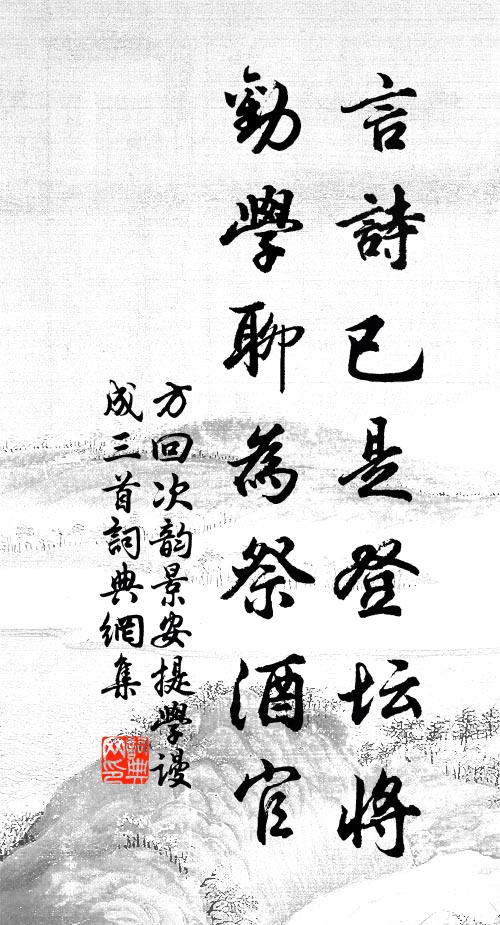 言詩已是登坛將
勸學聊為祭酒官
方回次韵景安提學谩
成三首詞典網集